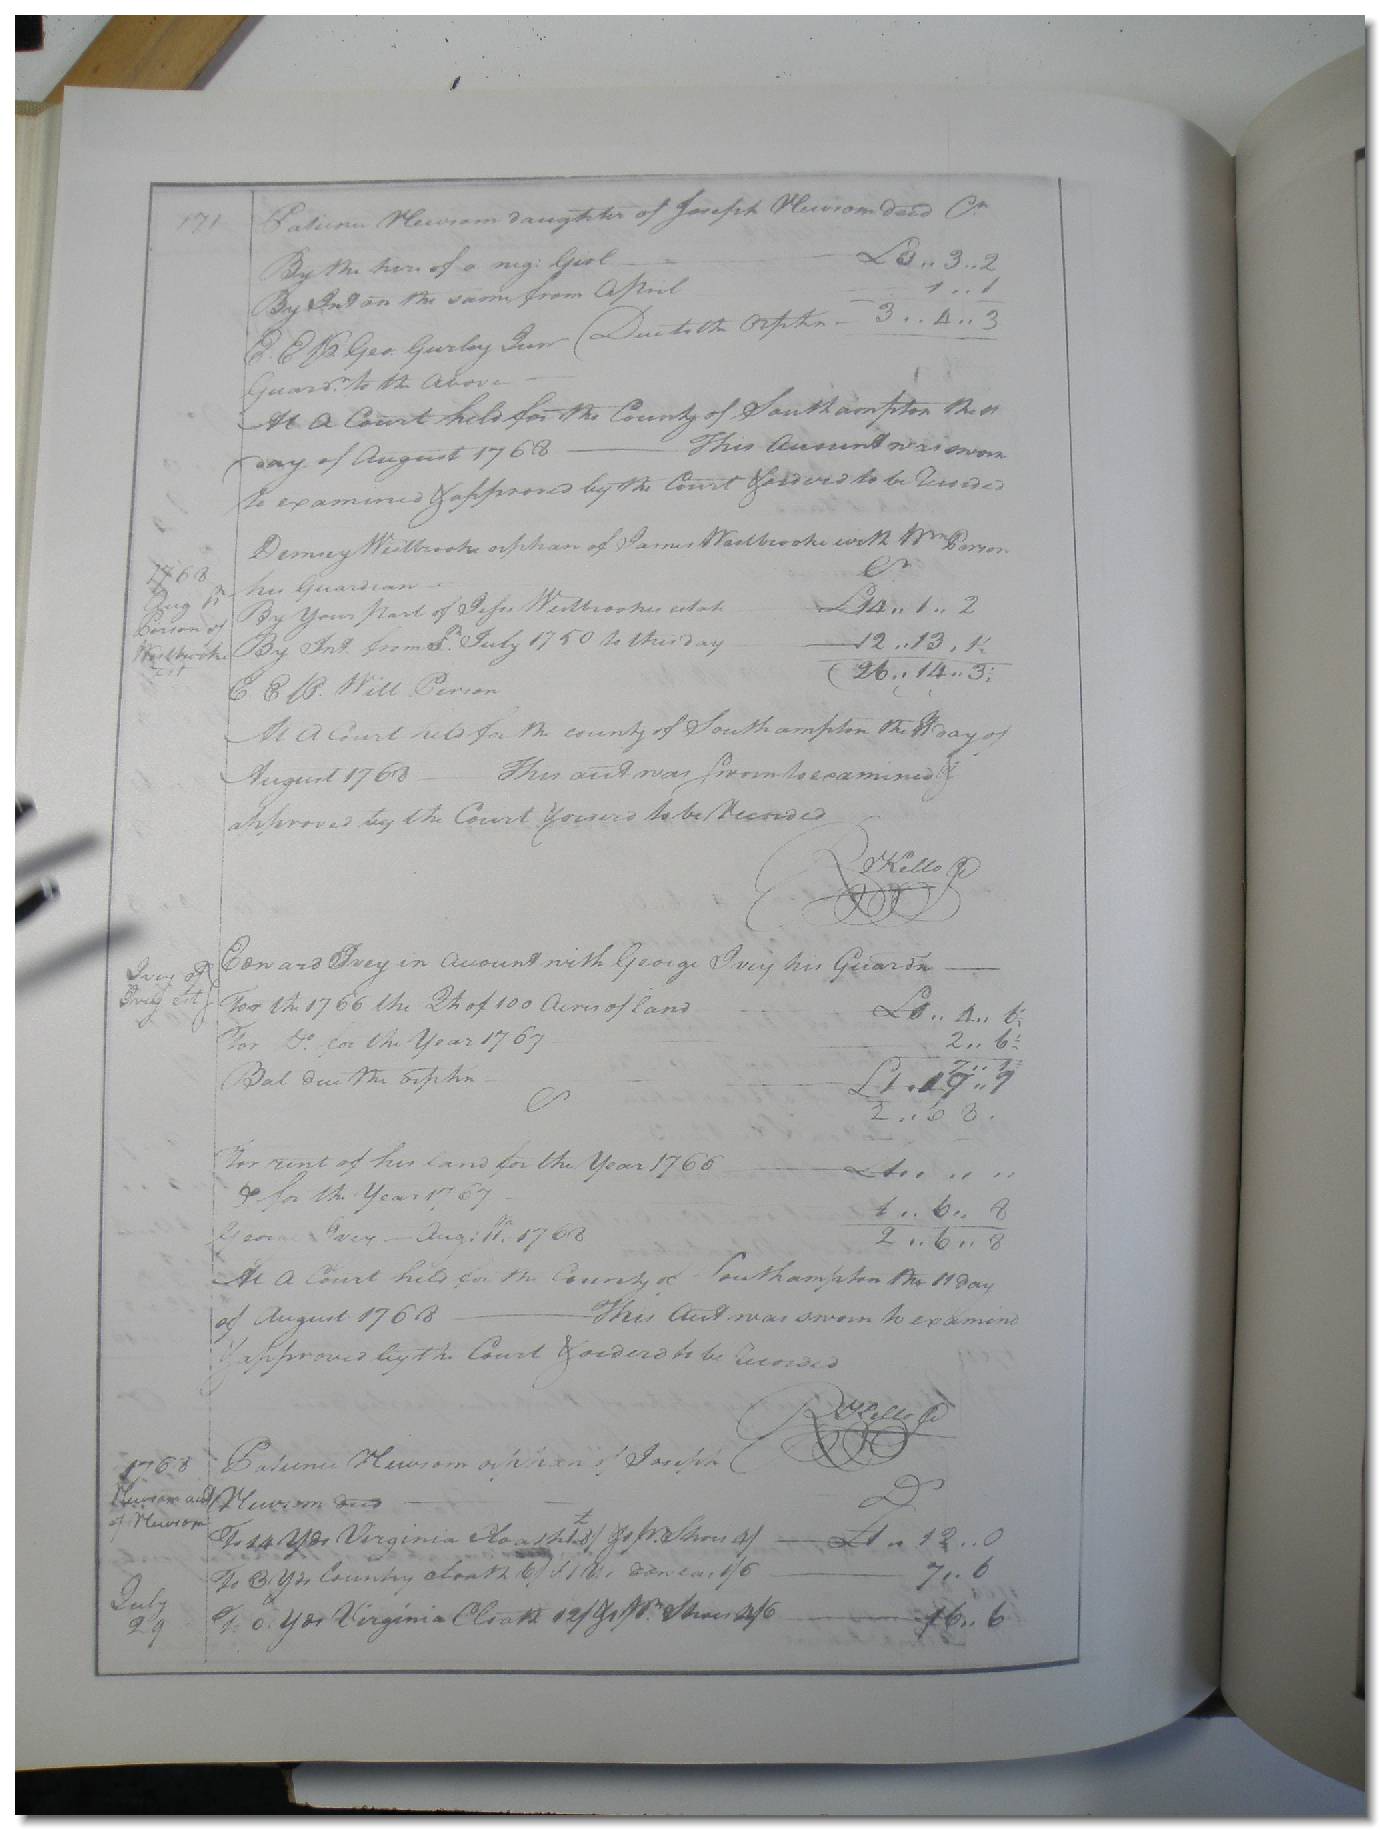 171 Patience Newsom daughter of Joseph Newsom decd Cr
By the hire of a neg: Girl £3..3..2
By Int on the same from April 1..1
E. E. Pr Geo. Gurley Junr (Due to the Orphn 3..4..3
Guardn. to the above
At A Court held for the County of Southampton the 11
day of August 1768 This Account was sworn
to examined & approved by the Court & orderd to be Recorded
Demcy Westbrooke orphan of James Westbrooke with Wm Person
1768 his Guardian Cr
Aug 11 By Your Part of Westbrookes estate £14..1..2
Person of
Westbrooke By Int. from July 1750 to this day 12..13..1
Est 26..14..3
E E Pr. Will Person
At A Court held for the county of Southampton the 11 day of
August 1768 This acct was Sworn to examined &
approved by the Court & orderd to be Recorded
R Kello
Ivey of Edward Ivey in account with George Ivey his Guardn
Ivey Est For the 1766 the Qt of 100 Acres of land
For Do. for the Year 1767 2..6
Bal due the orphn £1..19..7
Cr 2..6 8.
For rent of his land for the Year 1766
Do for the Year 1767 1..6..8
George Ivey Aug: 11. 1768 2..6..8
At A Court held for the County of Southampton the 11 day
of August 1768 This Acct was sworn to examind
& approved by the Court & orderd to be recorded
R Kello
1768 Patience Newsom orphan of Joseph
Newsom acct Newsom decd Dr
of Newsom To 14 Yds Virginia Cloath & 1 Pr. Shoes 4/ £1..12..0
To 3 Yds Country cloath 7..6
July
29 Yds Virginia Cloath 12/ & 1 Pr Shoes 4/6 16..6